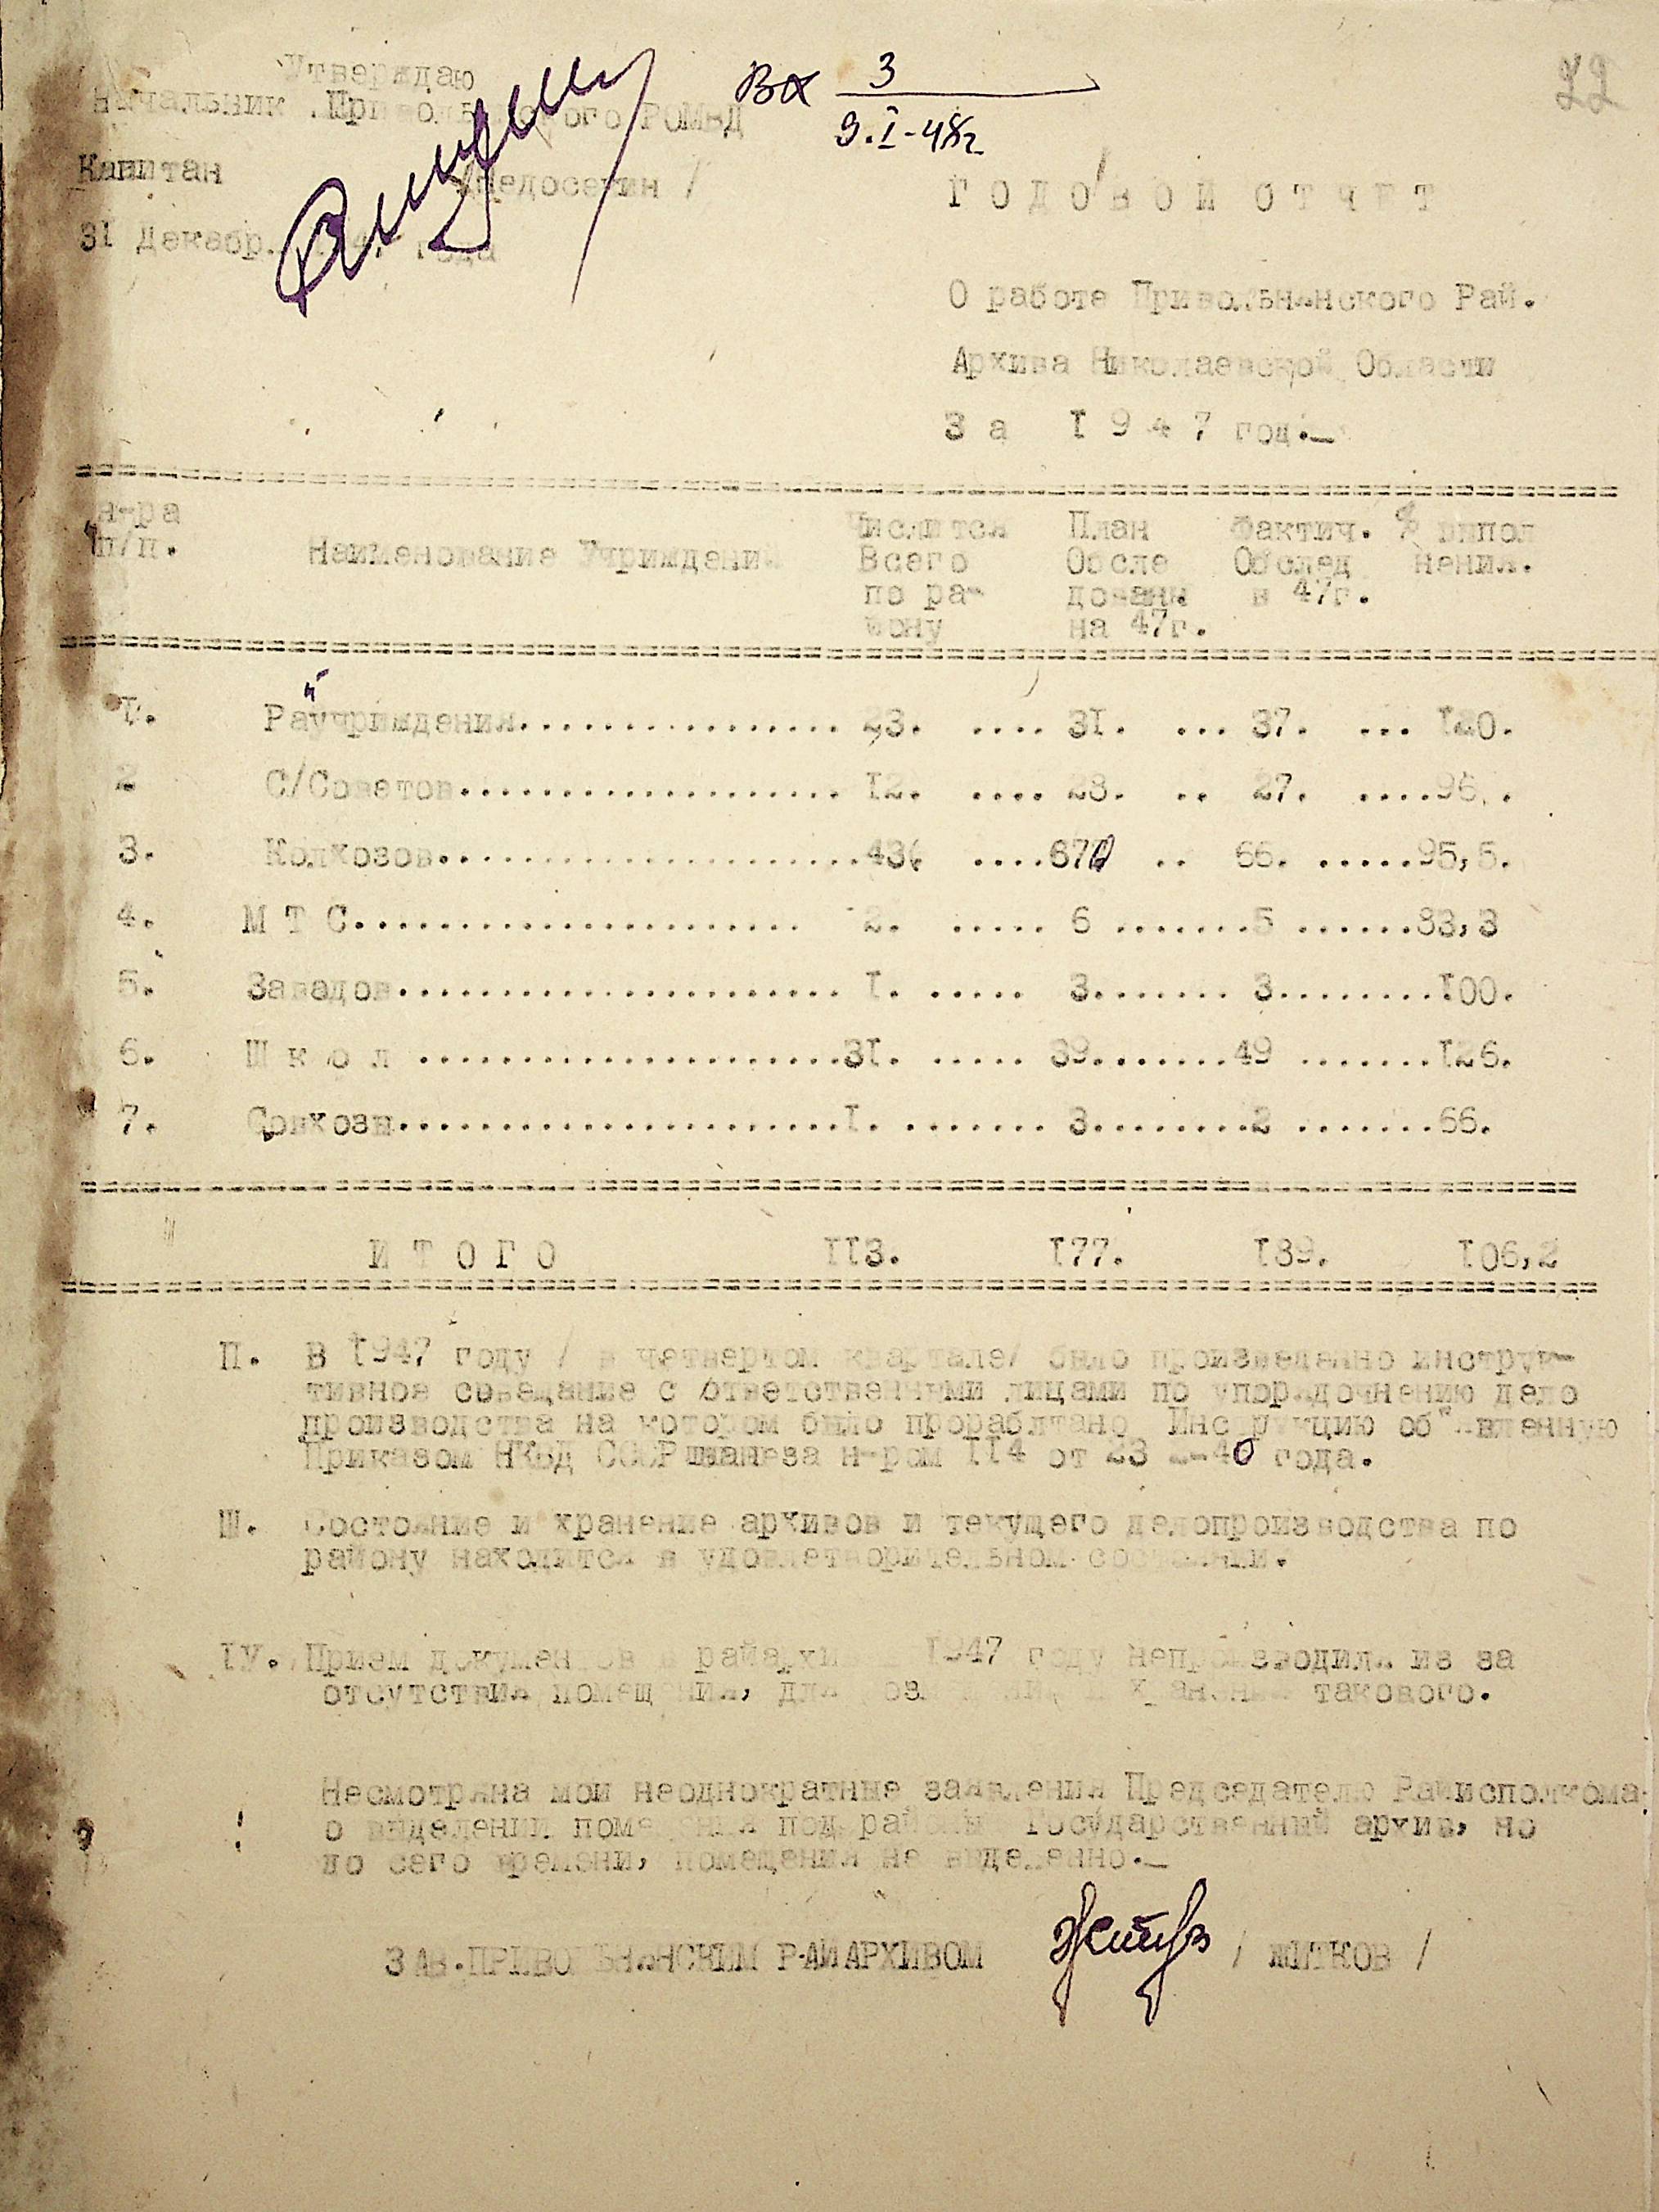 22
Вх 3
9.I-48г
Утверждаю
Начальник .Привольнянского РОМВД
Капитан /Федосечин /
31 Декабр. года
ГОДОВОЙ ОТЧЕТ
О работе Привольнянского Рай.
Архива Николаевской Области
За I947 год.—
н-ра п/п. Наименование Учриждений Числится Всего по ра-йону План Обсле довани на 47г. Фактич. Обслед в 47г. % выпол нения.
I. Райучриждения................ 23. .... 3I. ... 37. ... I20.
2 С/Советов................... I2. .... 28. .. 27. ....96..
3. Колхозов.....................43. ....67 .. 66. .....95,5.
4. М Т С...................... 2. ..... 6 .......5 ......83,3
5. Заводов...................... I. ..... 3....... 3.........I00.
6. Ш к о л .....................3I. ..... 39.......49 .......I26.
7. Совхозы......................I. ....... 3........2 .......66.
И Т О Г О II3. I77. I89. I06,2
П. В I947 году / в четвертом квартале/ было произведенно инструк-
тивное соведание с ответственными лицами по упорядочнению дело
производства на котором было прораблтано Инструкцию об"явленную
Приказом НКВД СССР н-ром II4 от 23 40 года.
Ш. Состояние и хранение архивов и текущего делопроизводства по
району находится в удовлетворительном состоянии.
IУ. Прием документов в райархив I947 году непроизводила из за
отсутствия помещения, для хранения такового.
Несмотряна мои неоднократные заявления Председателю Райисполкома
о выделении помещения под районный государственный архив, но
до сего времени, помещения не выделенно.—
ЗАВ.ПРИВОЛЬНЯНСКИМ РАЙАРХИВОМ / ЖИТКОВ /